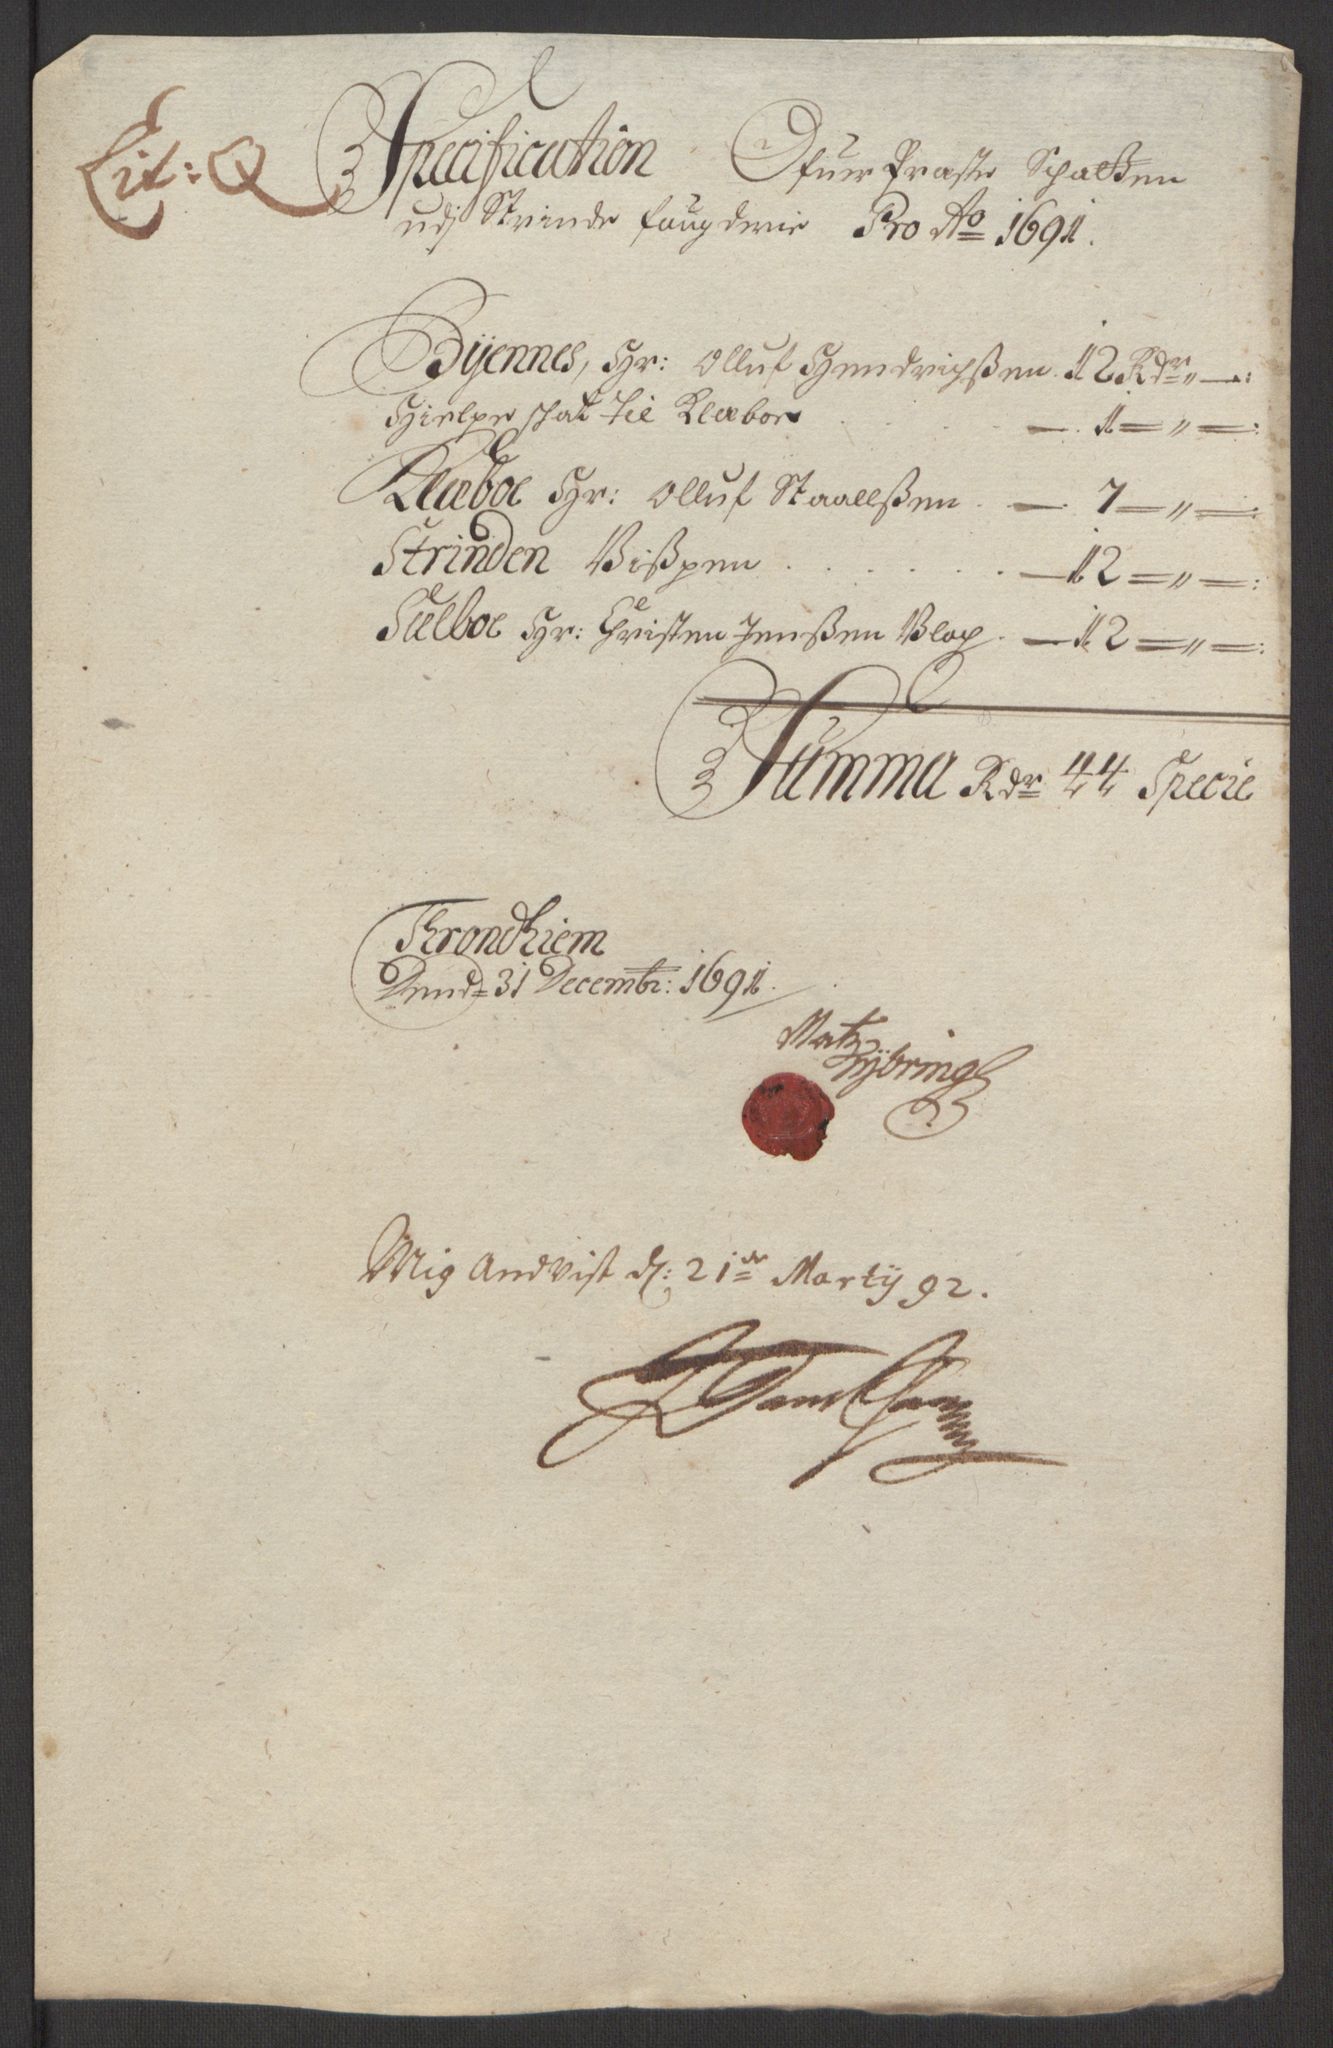 Lit: Q
Specification Ofuer Præste Schatten
udj Strinde fougderie Pro Ao 1691.
Byennes, Hr: Olluf Hendrichssen. 12 Rdr „ —:
Hielpe skat til Klæboe . . . — 1 = „ —:
Klæboe Hr: Olluf Staallssen. — 7 — „ —:
Strinden Bispen . . . . . . — 12 = „ —:
Selboe Hr: Christen Jenssen Blog. — 12 = „ —:
Summa Rdr 44 Specie
Throndhiem
Dend 31 Decembr: 1691.
Matz
Hybring
Mig Andvist d: 21de Martij 92.